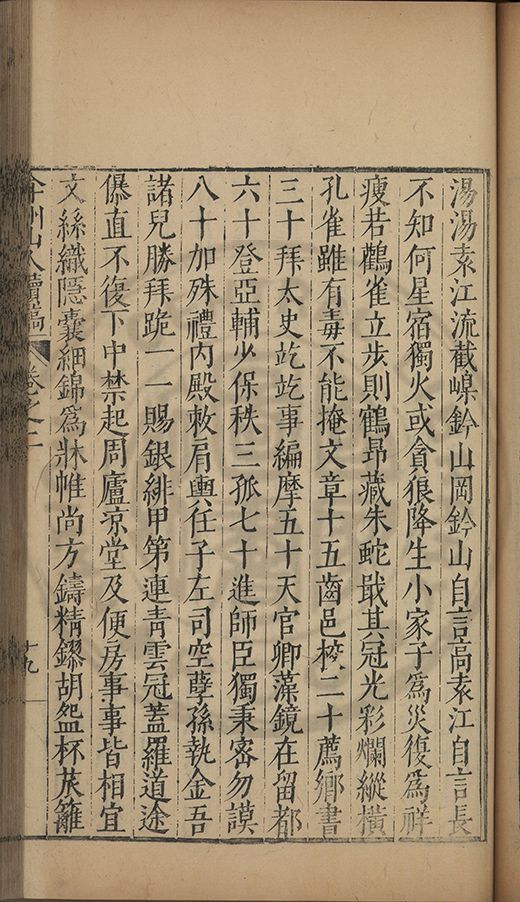 湯湯袁江流截嵲鈐山岡鈐山自言高袁江自言長
不知何星宿獨火或貪狼降生小家子為災復為祥
瘦若鸛雀立步則鶴昂藏朱蛇戢其冠光彩爛縱橫
孔雀雖有毒不能掩文章十五齒邑校二十薦鄉書
三十拜太史矻矻事編摩五十天官卿藻鏡在留都
六十登亞輔少保秩三孤七十進師臣獨秉密勿謨
八十加殊禮內殿敕肩輿任子左司空孽孫執金吾
諸兒勝拜跪一一賜銀緋甲第連青雲冠蓋羅道途
儤直不復下中禁起周廬凉堂及便房事事皆相宜
文絲織隱囊細錦為牀帷尚方鑄精鏐胡盌杯籬
弇州山人續稿 卷之二 十九